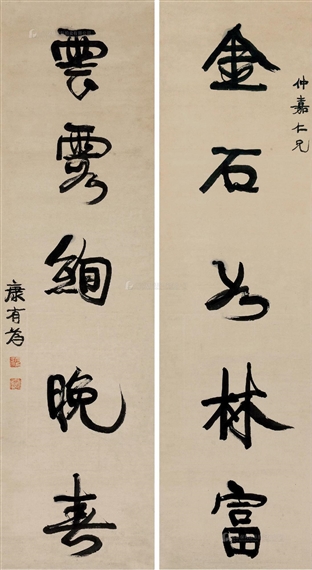 仲嘉仁兄
金石如林富
雲霞絢晚春
康有為